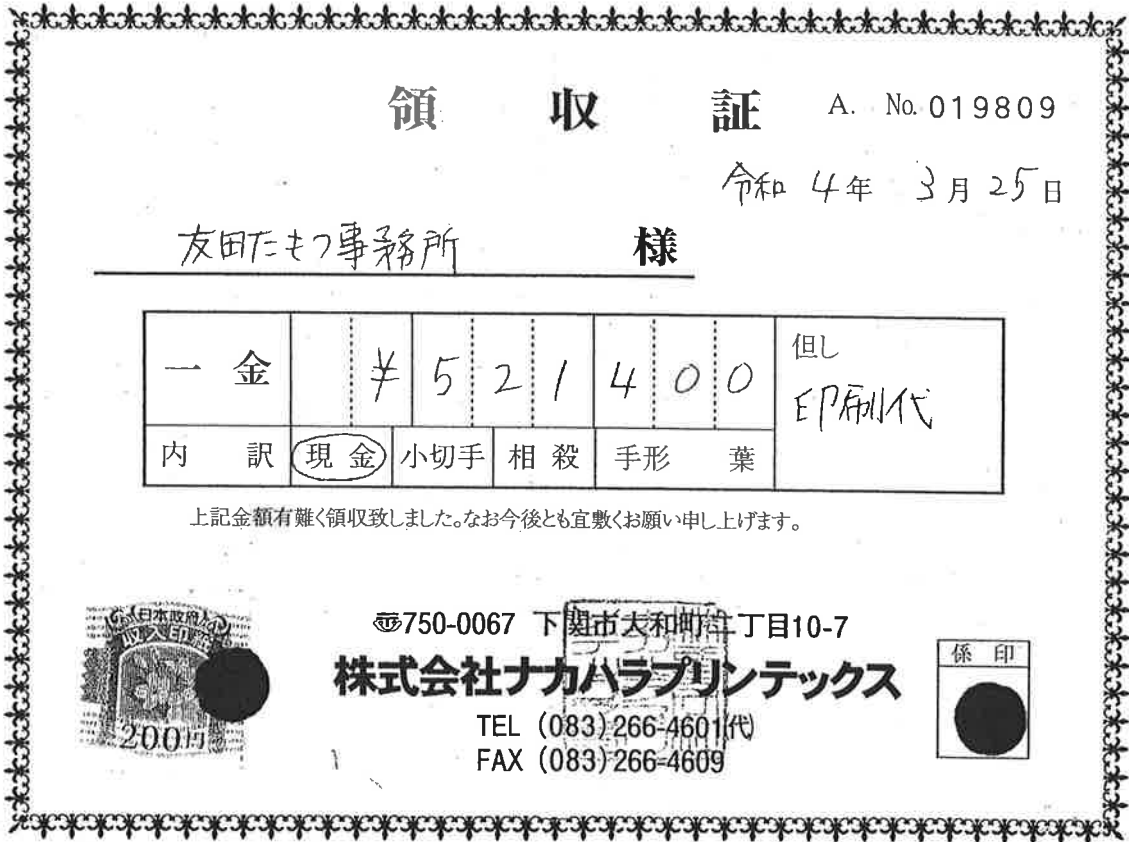 領 収 証 A. No. 019809
令和 4年 3月25日
友田たもつ事務所 様
一 金 ¥521400 但し
印刷代
内 訳 現金 小切手 相殺 手形 葉
上記金額有難く領収致しました。なお今後とも宜敷くお願い申し上げます。
日本政府
収入印紙
200円
〠750-0067 下関市大和町二丁目10-7
株式会社ナカハラプリンテックス
TEL (083)266-4601(代)
FAX (083)266-4609
係 印